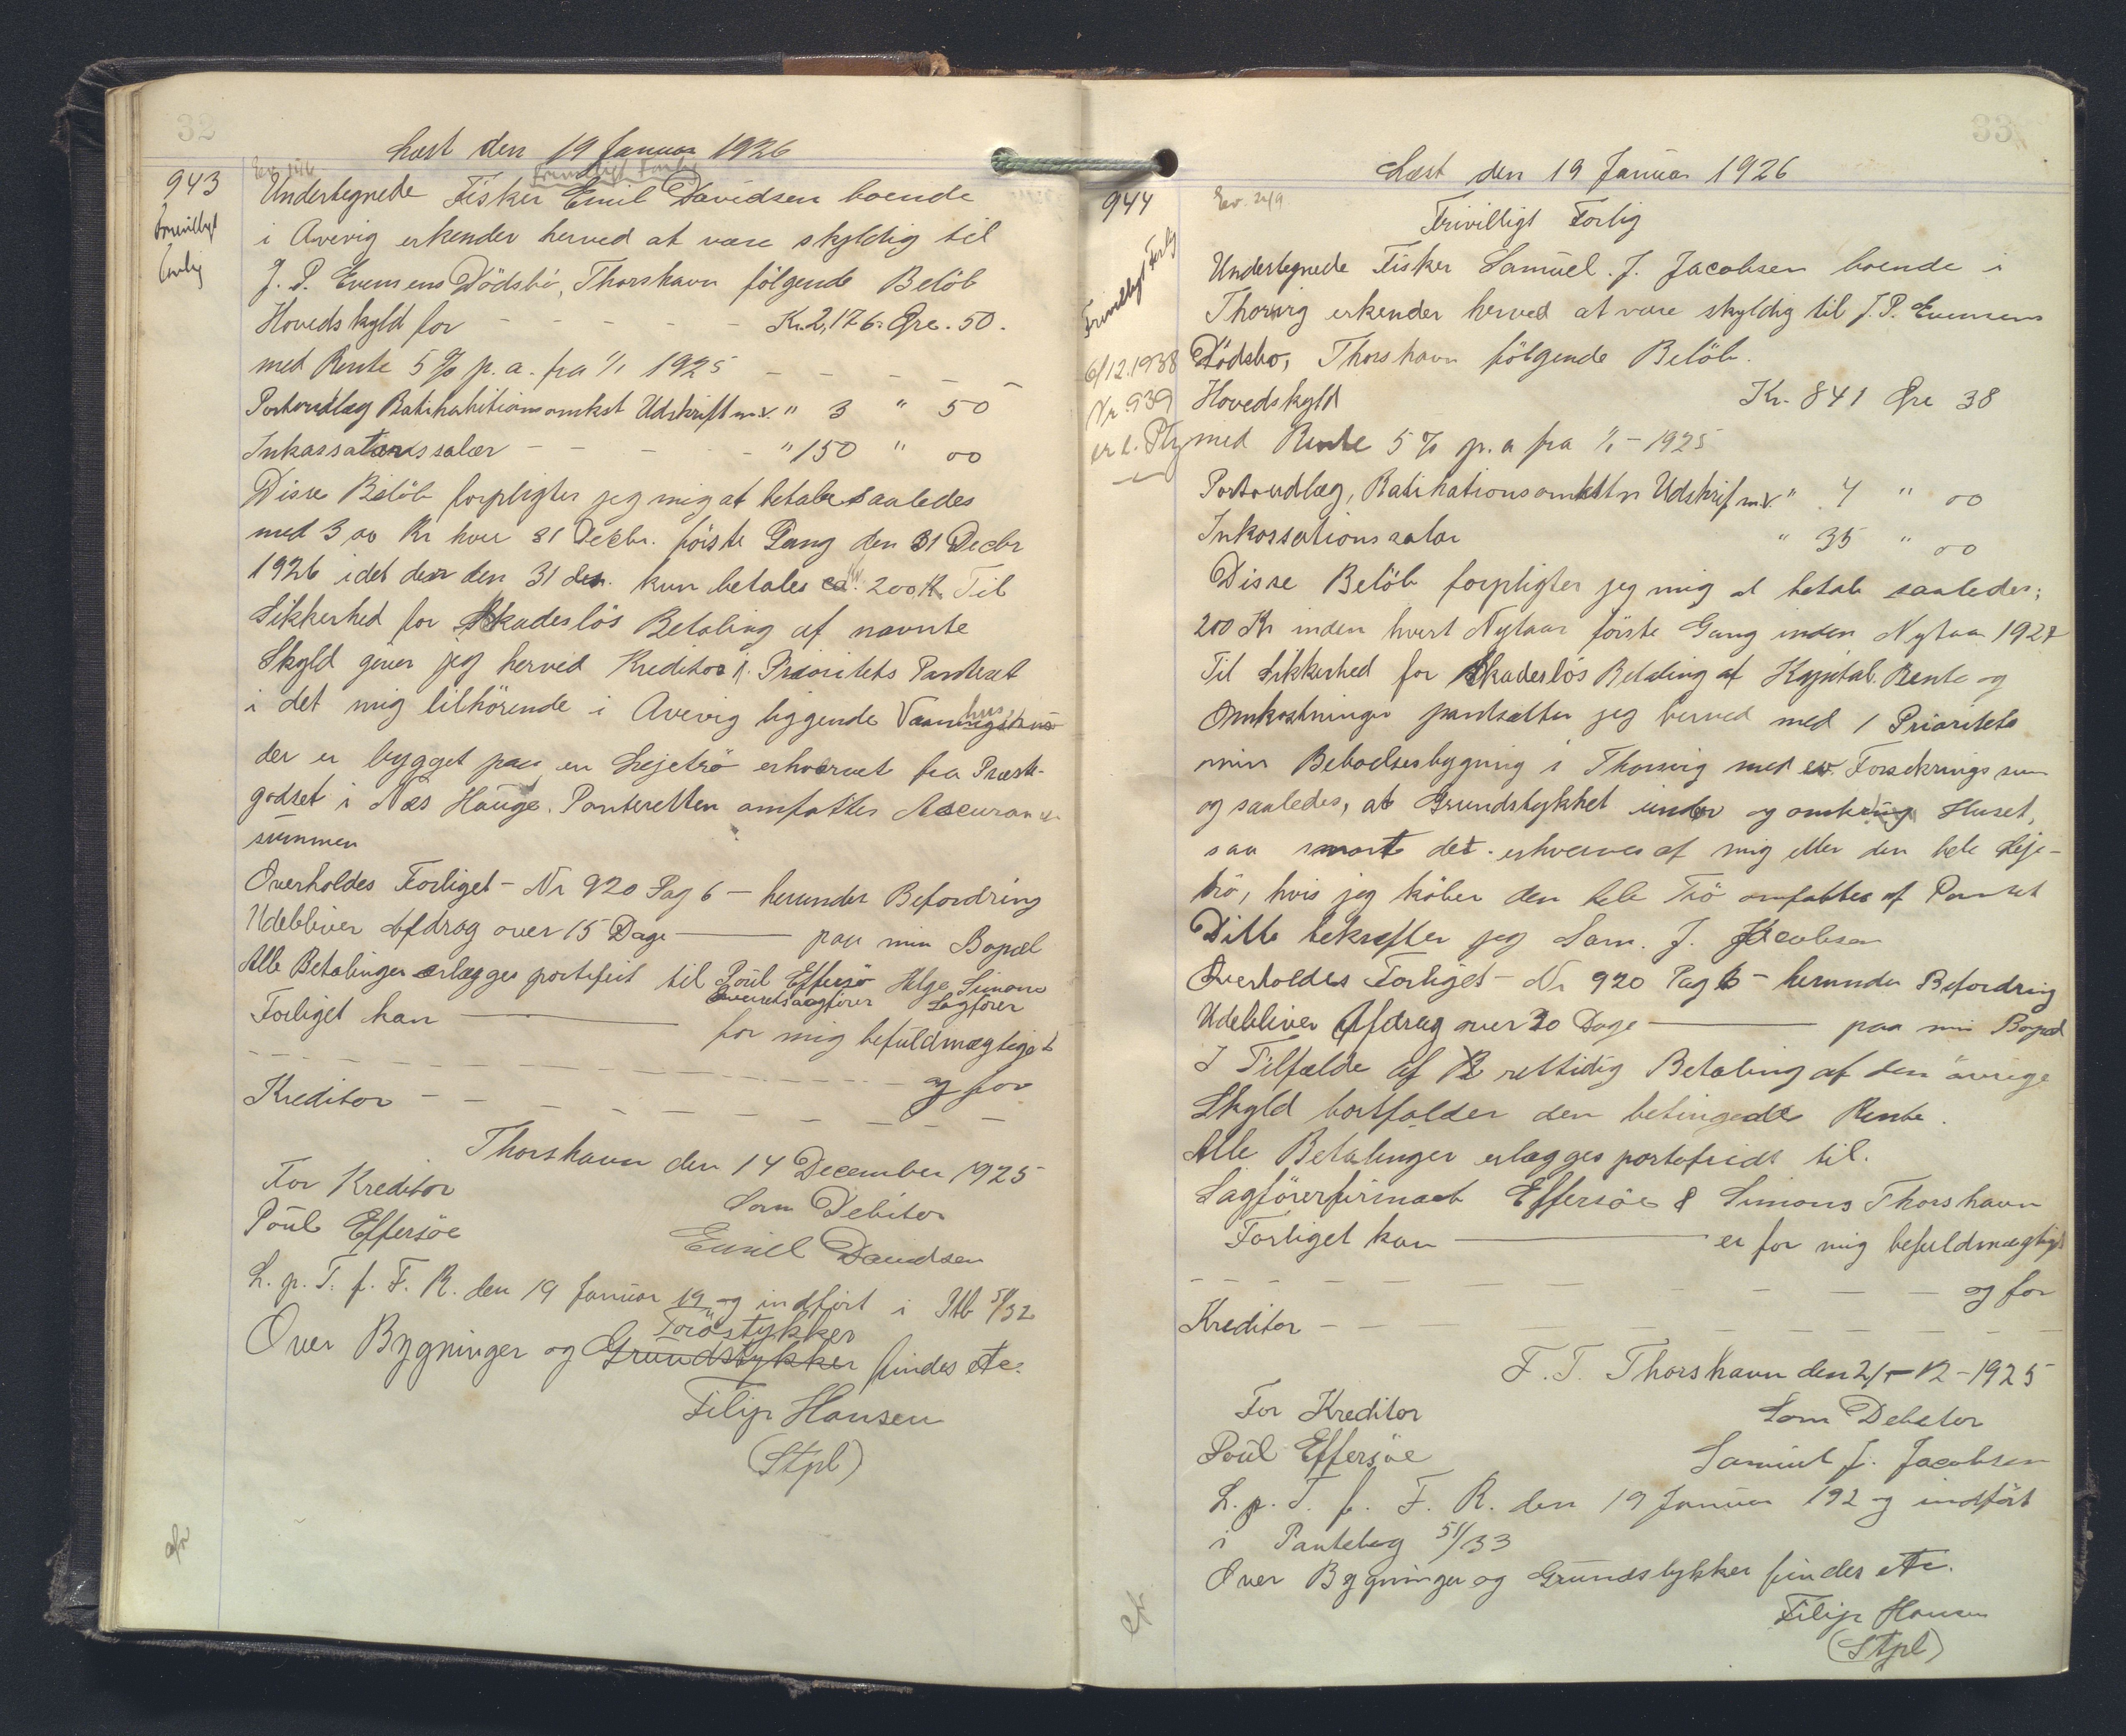 32
Læst den 19 Januar 1926
Frivilligt Forlig
943
Frivilligt
Forlig
Undertegnede Fisker Emil Davidsen boende
i Avevig erkender herved at være skyldig til
J. P. Evensens Dödsbo, Thorshavn fölgende Belöb
Hovedskyld for - - - - - Kr. 2,176. Öre. 50.
med Rente 5 % p. a. fra 1/1 1925 - - - - -
Portoudlæg Ratihabitionsomkst Udskrift m.v. " 3 " 50
Inkassationssalær - - - - - " 150 " 00
Disse Belöb forpligter jeg mig at betale saaledes
med 300 Kr hver 31 Decbr. förste Gang den 31 Decbr
1926 idet der den 31 des. kun betales ca. 200 K. Til
Sikkerhed for Skadeslös Betaling af nævnte
Skyld giver jeg herved Kreditor 1. Prioritets Panteret
i det mig tilhörende i Avevig liggende Vaaningshus
der er bygget paa en Lejetrö erhvervet fra Præste-
godset i Næs Hauge. Panteretten omfatter Assurance
summen
Overholdes Forliget - Nr 920 Pag 6 - herunder Befordring
Udebliver Afdrag over 15 Dage ——— paa min Bopæl
Alle Betalinger erlægges portofrit til Poul Effersö Helge Simons
Overretssagförer Sagförer
Forliget kan ——— for mig befuldmægtiget
- - - - - - - - og for
Kreditor - - - - - - - -
Thorshavn den 14 December 1925
For Kreditor Som Debitor
Poul Effersöe Emil Davidsen
L. p. T. f. F. R. den 19 Januar 19 og indfört i Ptb 51/32
Tröstykker
Over Bygninger og Grundstykker findes etc.
Filip Hansen
(Stpl)
33
Læst den 19 Januar 1926
944
Ev. 249
Frivilligt Forlig
Frivilligt Forlig
Undertegnede Fisker Samuel. J. Jacobsen boende i
Thorvig erkender herved at være skyldig til J. P. Evensens
6/12.1938
Nr. 939
Dödsbo, Thorshavn fölgende Belöb.
Hovedskyld Kr. 841 Öre 38
med Rente 5 % p. a fra 1/1 - 1925
Portoudlæg, Ratihationsomkstn Udskrif m.v. " 4 " 00
Inkassationssalær " 35 " 00
Disse Belöb forpligter jeg mig at betale saaledes;
200 Kr inden hvert Nytaar förste Gang inden Nytaar 1927
Til Sikkerhed for Skadeslös Betaling af Kapital. Rente og
Omkostninger pantsætter jeg herved med 1 Prioritets
min Beboelsesbygning i Thorvig med ev. Forsikringssum
og saaledes, at Grundstykket under og omkring Huset,
saa snart det erhverves af mig eller den hele Leje-
trö, hvis jeg köber den hele Trö omfattes af Pantet
Dette bekræfter jeg Sam. J. Jacobsen
Overholdes Forliget - Nr 920 Pag 6 - herunder Befordring
Udebliver Afdrag over 30 Dage ——— paa min Bopæl
I Tilfælde af rettidig Betaling af den övrige
Skyld bortfalder den betingede Rente.
Alle Betalinger erlægges portofridt til.
Sagförerfirmaet Effersöe & Simons Thorshavn
Forliget kan ——— er for mig befuldmægtiget
- - - - - - - - og for
Kreditor - - - - - - - -
F. T. Thorshavn den 21-12-1925
For Kreditor Som Debitor
Poul Effersöe Samuel J. Jacobsen
L. p. T. f. F. R. den 19 Januar 192 og indfört
i Pantebog 51/33
Over Bygninger og Grundstykker findes etc.
Filip Hansen
(Stpl)